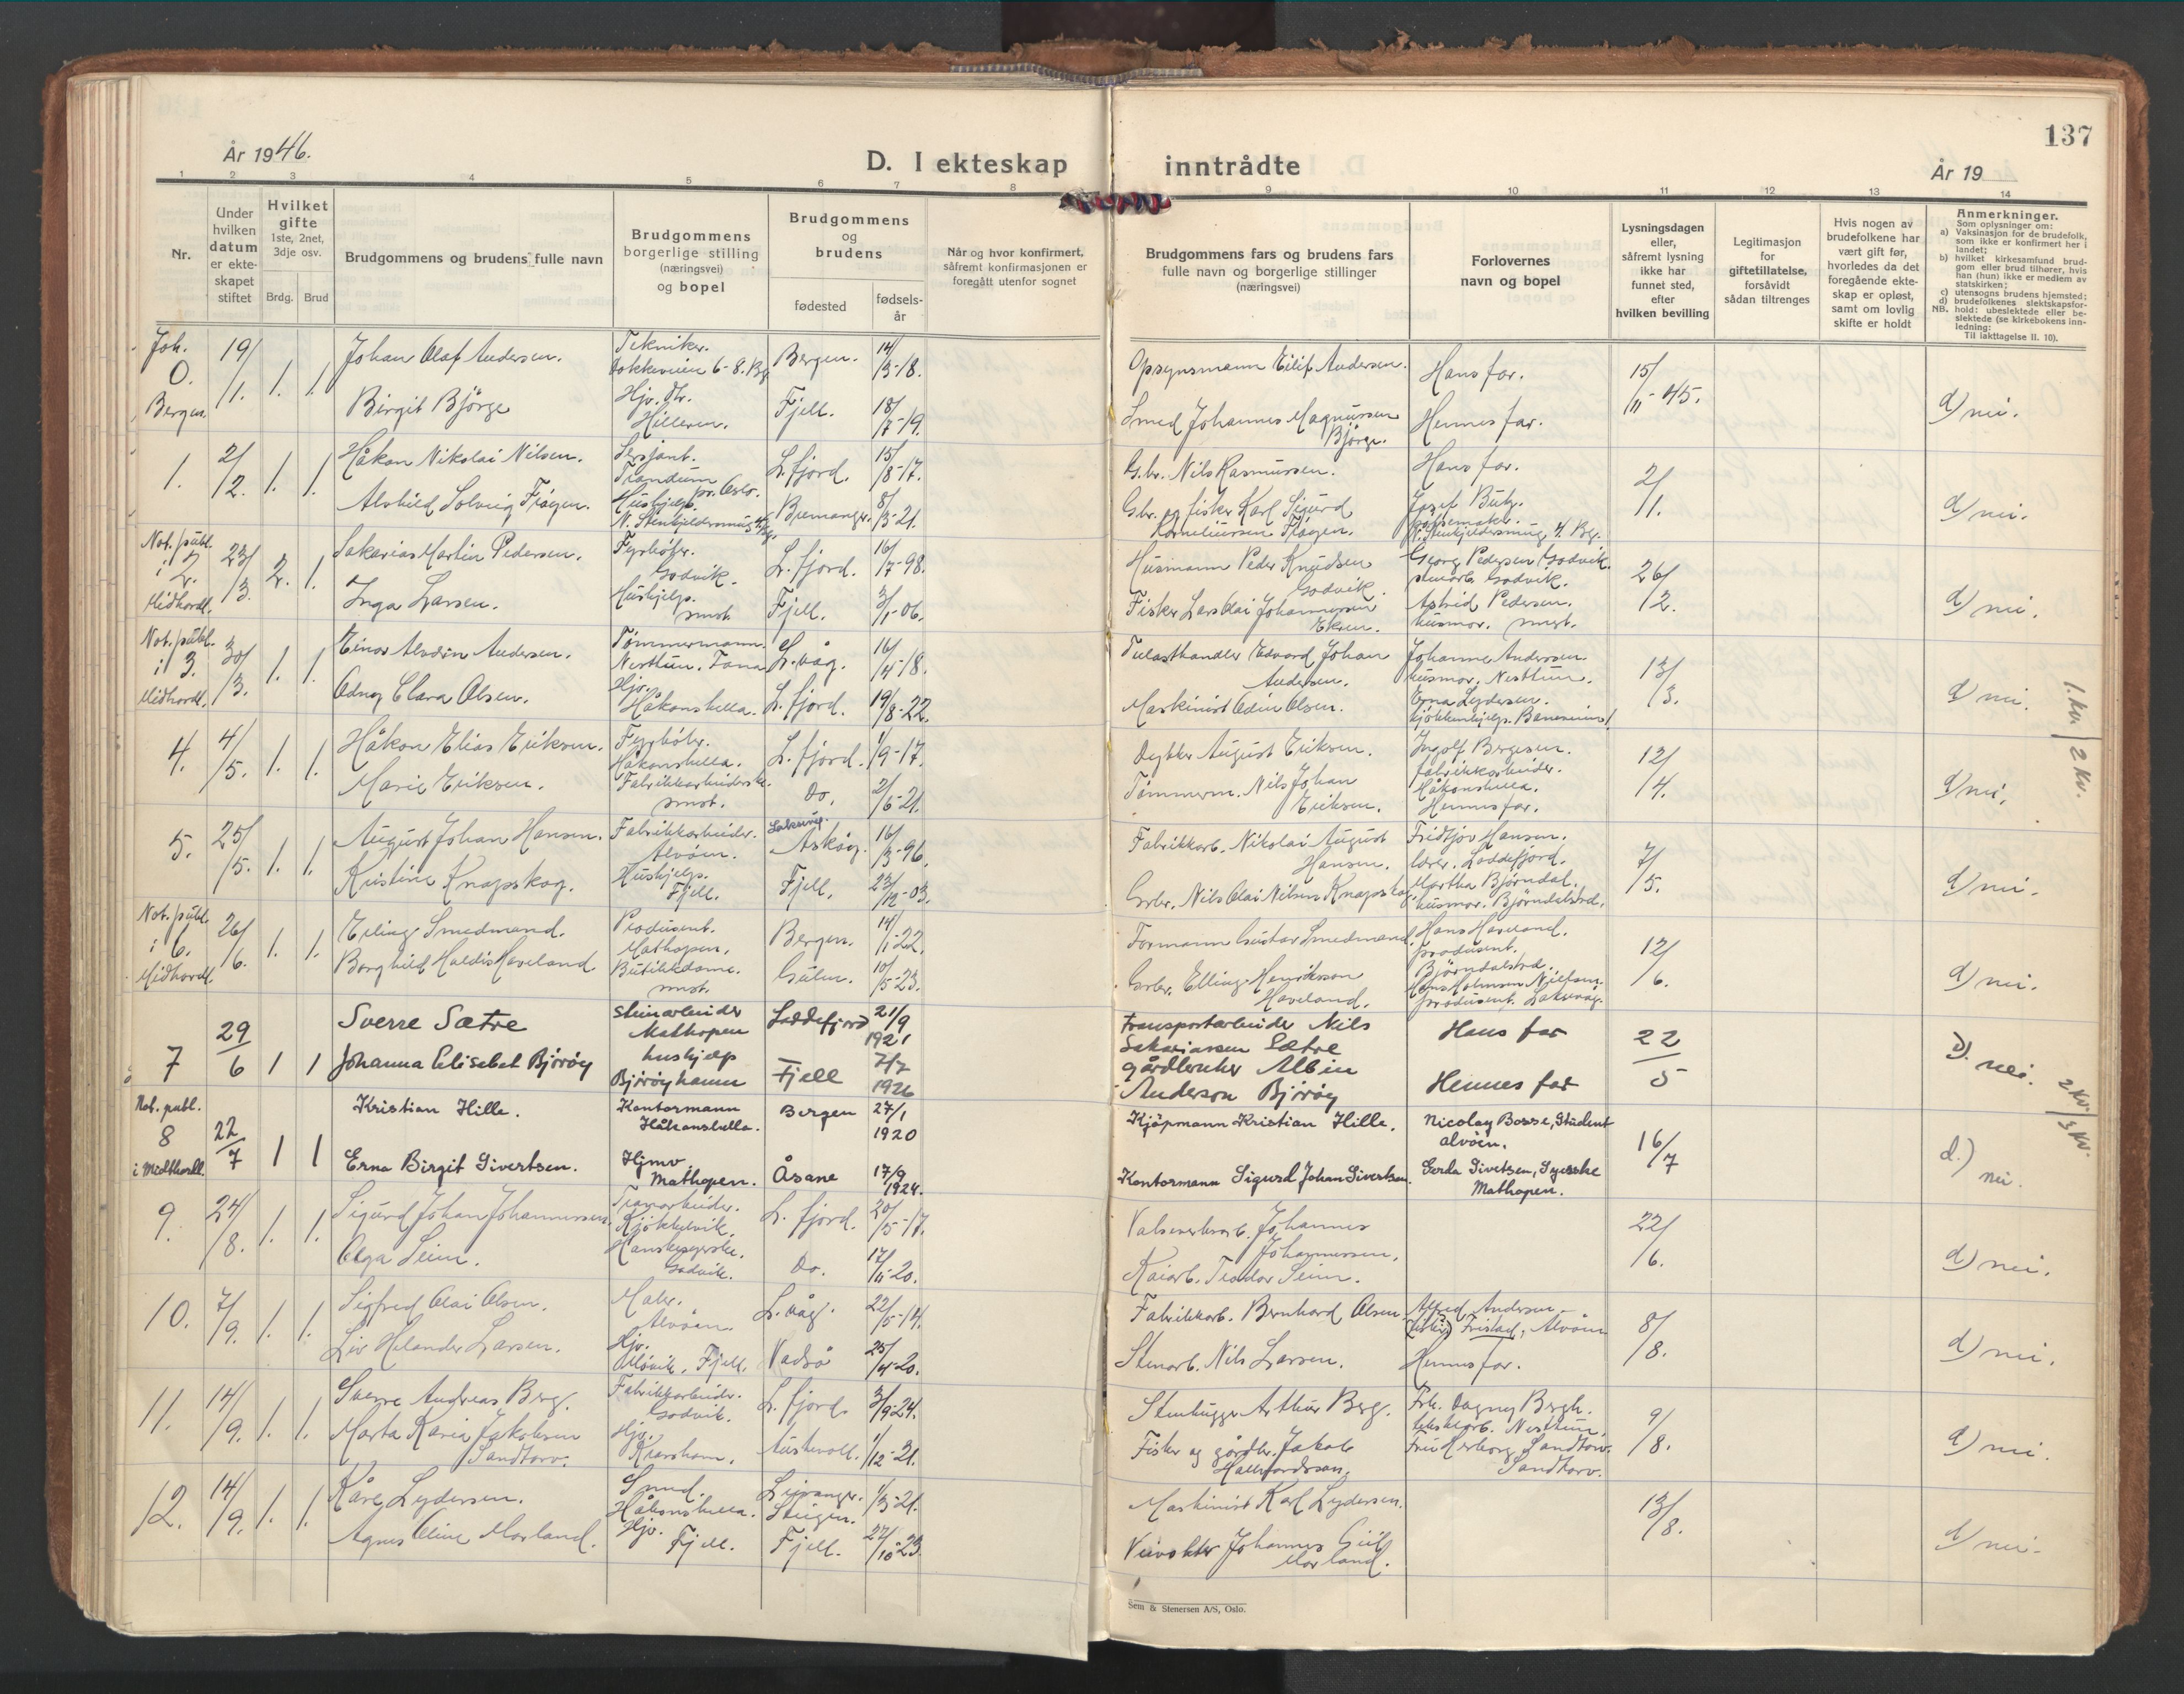 137
År 1946.
D. I ekteskap inntrådte
År 19
1 2 3 4 5 6 7 8 9 10 11 12 13 14
Nr.
Under
hvilken
datum
er ekte-
skapet
stiftet
Hvilket
gifte
1ste, 2net,
3dje osv.
Brdg. Brud
Brudgommens og brudens fulle navn
Brudgommens
borgerlige stilling
(næringsvei)
og bopel
Brudgommens
og
brudens
fødested
fødsels-
år
Når og hvor konfirmert,
såfremt konfirmasjonen er
foregått utenfor sognet
Brudgommens fars og brudens fars
fulle navn og borgerlige stillinger
(næringsvei)
Forlovernes
navn og bopel
Lysningsdagen
eller,
såfremt lysning
ikke har
funnet sted,
efter
hvilken bevilling
Legitimasjon
for
giftetillatelse,
forsåvidt
sådan tiltrenges
Hvis nogen av
brudefolkene har
vært gift før,
hvorledes da det
foregående ekte-
skap er opløst,
samt om lovlig
skifte er holdt
Anmerkninger.
Som oplysninger om:
a) Vaksinasjon for de brudefolk,
som ikke er konfirmert her i
landet;
b) hvilket kirkesamfund brud-
gom eller brud tilhører, hvis
han (hun) ikke er medlem av
statskirken;
c) utensogns brudens hjemsted;
d) brudefolkenes slektskapsfor-
hold: ubeslektede eller be-
slektede (se kirkebokens inn-
ledning:
NB. Til iakttagelse II. 10).
Joh.
0.
Bergen.
19/1. 1. 1.
Johan Olaf Andersen.
Tekniker.
Dokkeveien 6-8. Bg.
Bergen. 14/3-18.
Opsynsmann Eilif Andersen.
Hans far.
15/11-45.
d) nei.
Birgit Bjørge
Hjv. dtr.
Hilleren.
Fjell. 18/7-19.
Smed Johannes Magnussen
Bjørge.
Hennes far.
1. 2/2. 1. 1.
Håkon Nikolai Nilsen.
Sersjant.
Trandum
pr. Oslo.
L. fjord. 15/8-17.
Gbr. Nils Rasmussen.
Hans far.
2/1.
d) nei.
Alvhild Solveig Frøyen.
Hushjelp.
Bremanger. 8/3-21.
Gbr. og fisker Karl Sigurd
Korneliussen Frøyen.
Not. publ.
i 2.
Midhordl.
23/3. 2. 1.
Sakarias Martin Pedersen.
Fyrbøter.
Godvik.
L. fjord. 16/7-98.
Husmann Peder Knudsen
Godvik.
Georg Pedersen Godvik.
stenarb. Godvik.
26/2.
d) nei.
Inga Larsen.
Hushjelp.
smst.
Fjell. 3/1-06.
Fisker Lars Olai Johannessen
Ekren.
Astrid Pedersen.
husmor. smst.
Not. publ.
i 3.
Midhordl.
30/3. 1. 1.
Einar Alvdin Andersen.
Tømmermann.
Nesttun. Fana
L. våg. 16/4-18.
Edvard Johan
Andersen.
Johanne Andersen.
husmor. Nesttun.
13/3.
d) nei.
Odny Clara Olsen.
Hjv.
Håkonshella.
L. fjord. 19/8-22.
Maskinist Odin Olsen.
Erna Lydersen.
4. 4/5. 1. 1.
Håkon Elias Eriksen.
Fyrbøter.
Håkonshella.
L. fjord. 1/9-17.
Dykker August Eriksen.
Ingolf Bergesen.
fabrikkarbeider.
Håkonshella.
12/4.
d) nei.
Marie Eriksen.
Fabrikkarbeiderske.
smst.
Do. 2/6-21.
Tømmerm. Nils Johan
Eriksen.
Hennes far.
5. 25/5. 1. 1.
August Johan Hansen.
Fabrikkarbeider.
Alvøen.
Laksevåg.
Askøy. 16/3-96.
Fabrikkarb. Nikolai August
Hansen.
Fridtjov Hansen.
lærer. Loddefjord.
7/5.
d) nei.
Kristine Knapskog.
Hushjelp.
Fjell.
Fjell. 23/12-03.
Grbr. Nils Olai Nilsen Knapskog.
Martha Bjørndal.
husmor. Bjørndalstræ.
Not. publ.
i 6.
Midhordl.
26/6. 1. 1.
Erling Smedmand.
Produsent.
Mathopen.
Bergen. 14/1-22.
Formann Gustav Smedmand.
Hans Haveland.
produsent.
Bjørndalstræ.
12/6.
d) nei.
Borghild Haldis Haveland.
Butikkdame.
smst.
Gulen. 10/5-23.
Grbr. Elling Henriksson
Haveland.
Hans Holmsen Nielsen.
produsent. Laksevåg.
7 29/6 1 1
Sverre Sætre
Stenarbeider
Mathopen
Loddefjord 21/9
1921
Transportarbeider Nils
Sakariassen Sætre
Hans far
22/5
d). nei.
Johanna Elisebet Bjørøy
hushjelp
Bjørøyhamn
Fjell 7/7
1926
gårdbruker Albin
Anderson Bjørøy
Hennes far
Not. publ.
8
i Midthordl.
22/7 1 1
Kristian Hille.
Kontormann
Håkonshella.
Bergen 27/1
1920
Kjøpmann Kristian Hille.
Nicolay Bosse, Student
Alvøen.
16/7
d.) nei.
Erna Birgit Sivertsen.
Hjmv.
Mathopen.
Åsane 17/9
1924.
Kontormann Sigurd Johan Sivertsen.
Gerda Sivertsen, Syerske
Mathopen.
9. 24/8. 1. 1.
Sigurd Johan Johannessen.
Kjøkkelvik.
L. fjord. 20/5-17.
Valseverksarb. Johannes
Johannessen.
22/6.
d) nei.
Olga Seim.
Hanskesyerske.
Godvik.
Do. 17/11-20.
Kaiarb. Teodor Seim.
10. 7/9. 1. 1.
Sigfred Olai Olsen.
Maler.
Alvøen.
L. våg. 22/5-14.
Fabrikkarb. Bernhard Olsen.
Alfred Andersen
Fristad, Alvøen
8/8.
d) nei.
Liv Helander Larsen.
Hjv.
Fjell.
Vadsø 25/4-20.
Stenarb. Nils Larsen.
Hennes far.
11. 14/9. 1. 1.
Sverre Andreas Berg.
Fabrikkarbeider.
Godvik.
L. fjord. 3/9-24.
Stenhugger Arthur Berg.
Frk. Dagny Bergh.
Nesttun.
9/8.
d) nei.
Marta Karia Jakobsen
Sandtorv.
Hjv.
Austevoll. 1/12-21.
Fisker og gårdbr. Jakob
Hallvardsson.
Fru Herborg Sandtorv.
Sandtorv.
12. 14/9. 1. 1.
Kåre Lydersen.
Smed.
Håkonshella.
Leiranger.
Steigen. 1/3-21.
Maskinist Karl Lydersen.
13/8.
d) nei.
Agnes Oline Morland.
Hjv.
Fjell.
Fjell. 27/10-23.
Veivokter Johannes
Morland.
1. kv. 2 kv.
2 kv. 3 kv.
Sem & Stenersen A/S, Oslo.